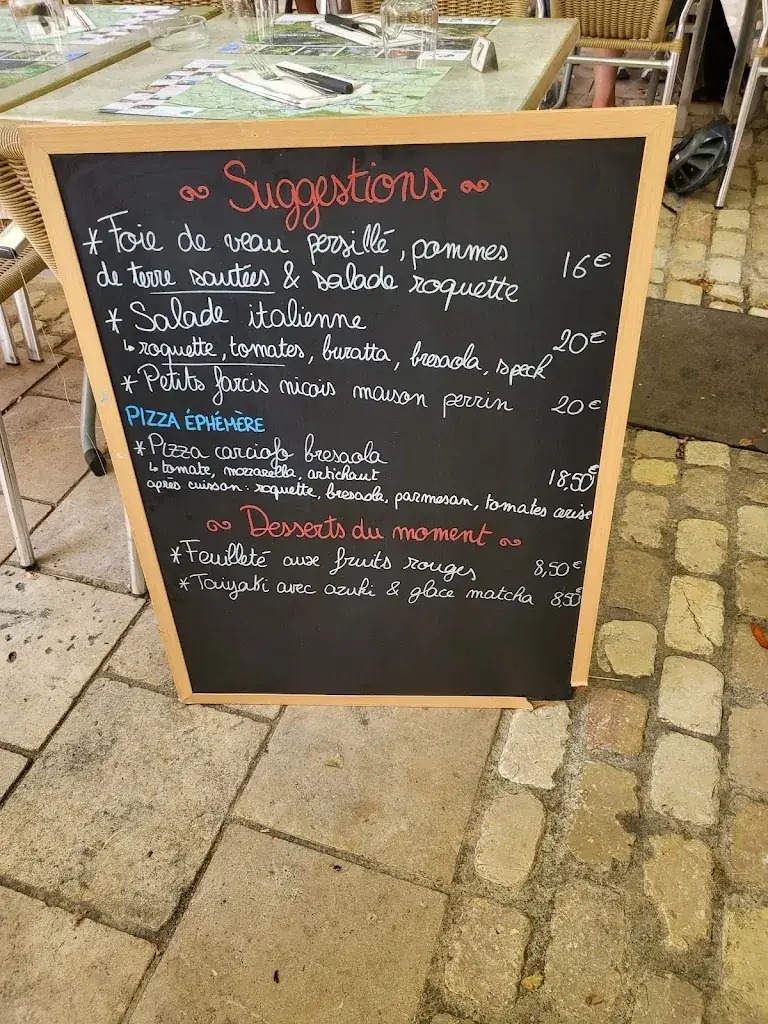 Suggestions
* Foie de veau persillé, pommes
de terre sautées & salade roquette 16€
* Salade italienne
↳ roquette, tomates, buratta, bresaola, speck 20€
* Petits farcis niçois maison perrin 20€
PIZZA ÉPHÉMÈRE
* Pizza carciofo bresaola
↳ tomate, mozzarella, artichaut 18,50€
après cuisson : roquette, bresaola, parmesan, tomates cerise
Desserts du moment
* Feuilleté aux fruits rouges 8,50€
* Taiyaki avec azuki & glace matcha 8,50€